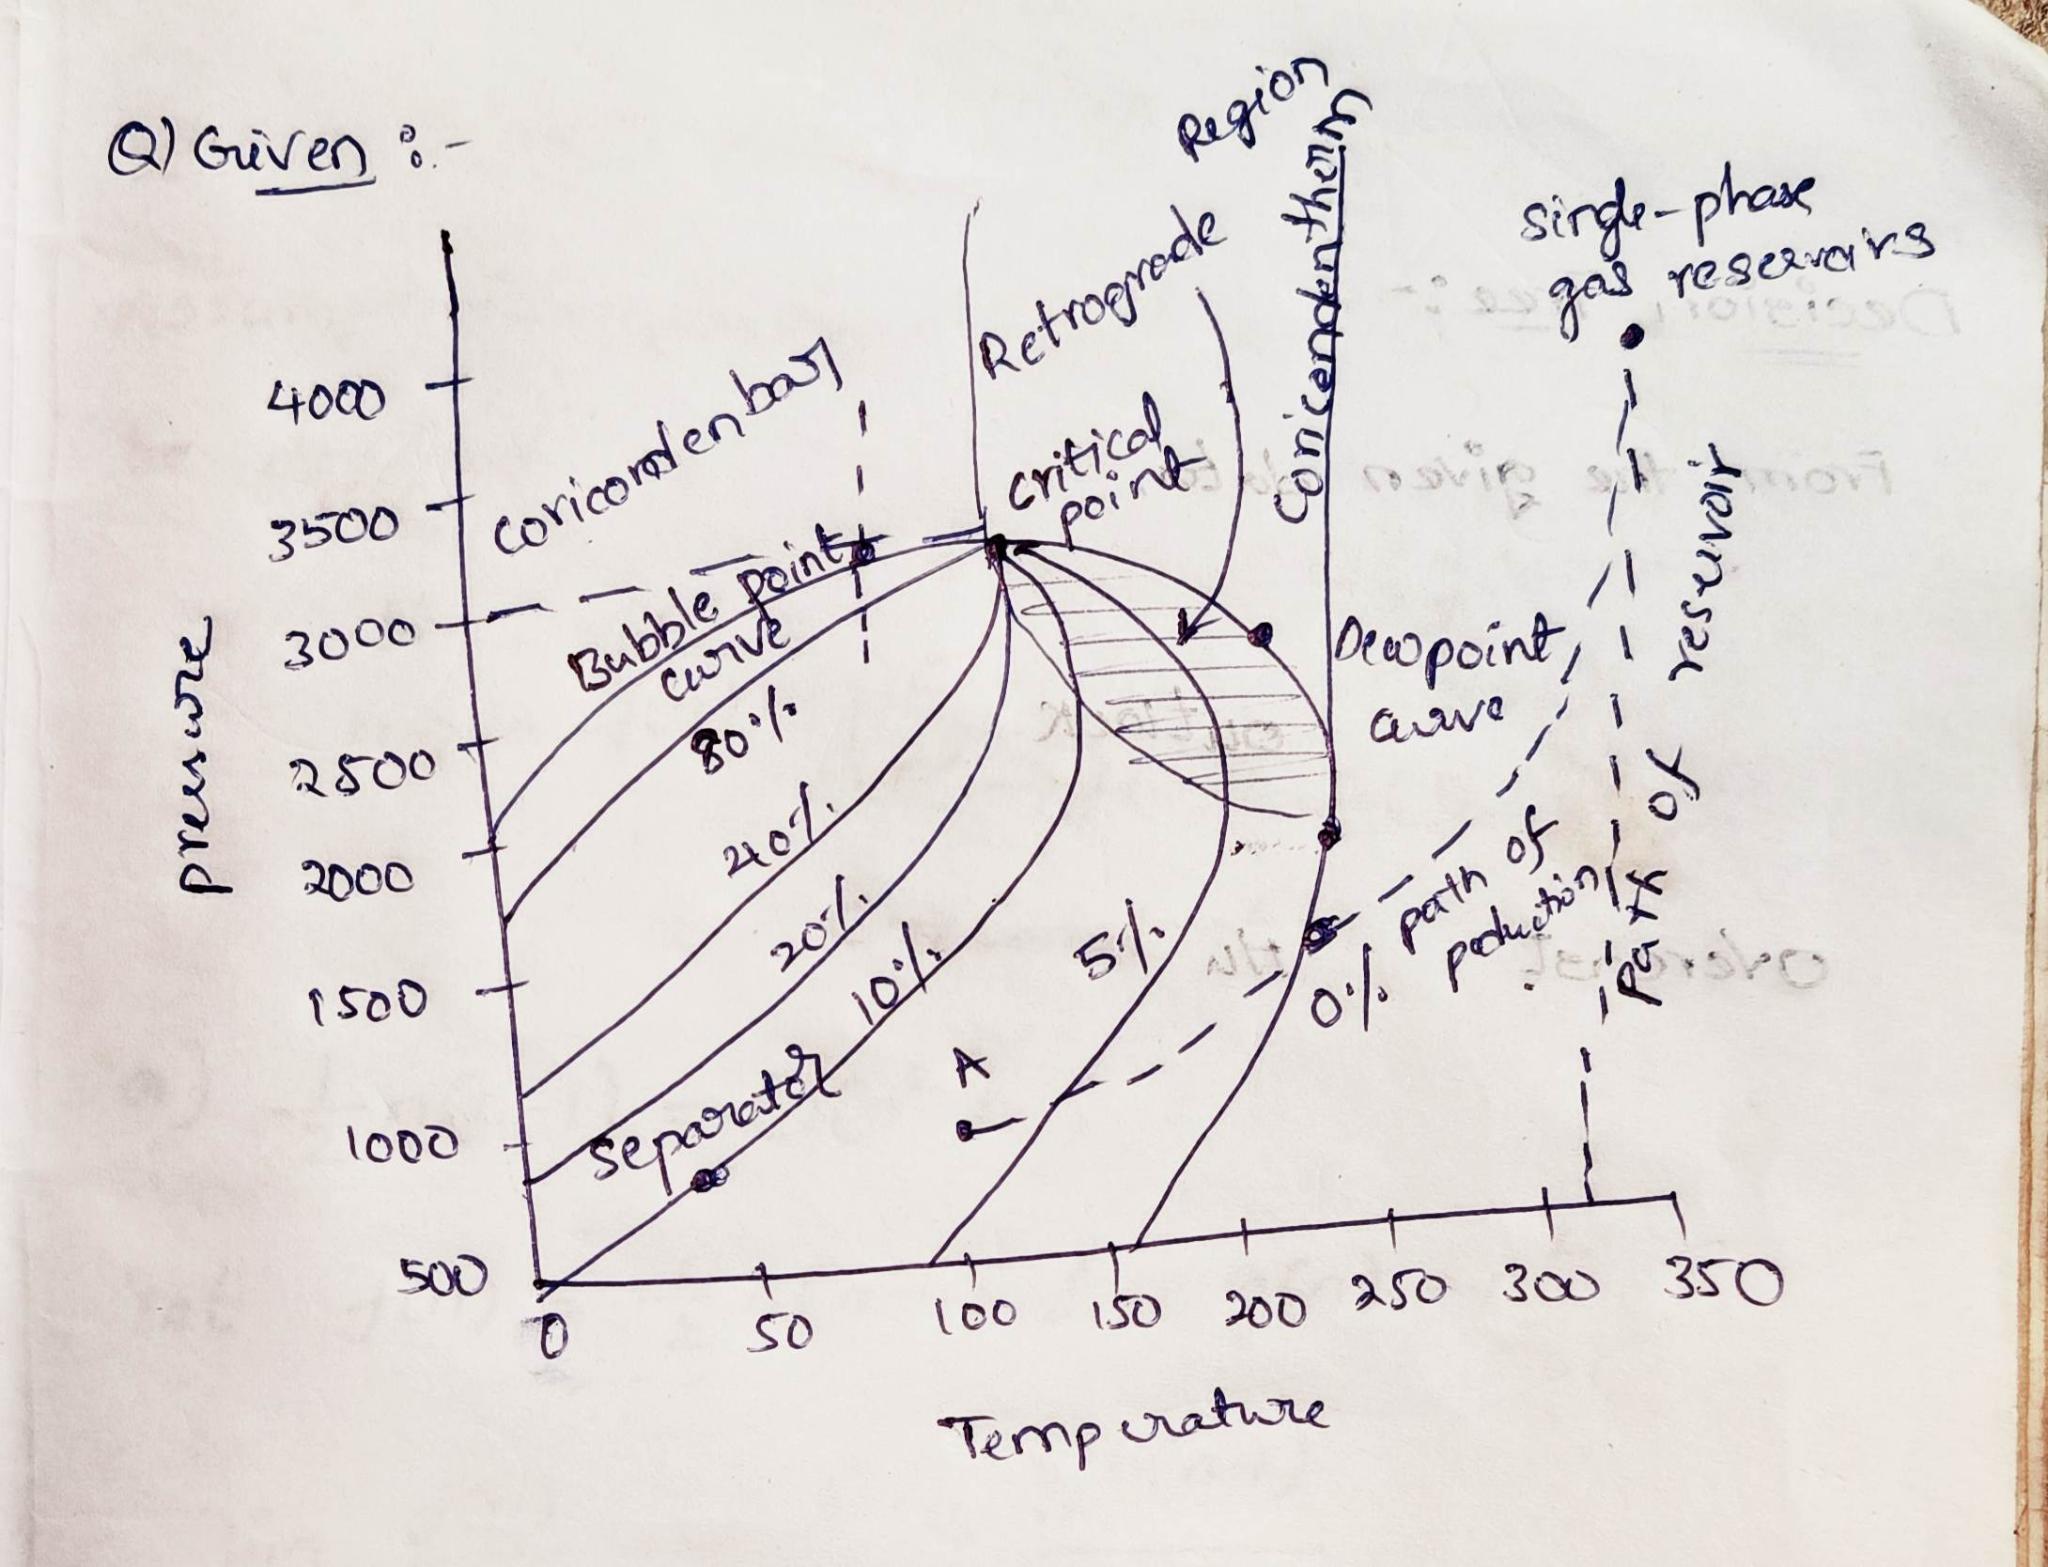 Q) Given :-
Region
Retrograde
Coricendentherm
single-phase
gas reservoirs
4000
Coricondenbar
critical
point
3500
Bubble point
curve
3000
Dewpoint
curve
pressure
path of reservoir
2500
80%
2000
40%
20%
path of
production
1500
10%
5%
0%
A
1000
separator
500
0
50
100
150
200
250
300
350
Temperature